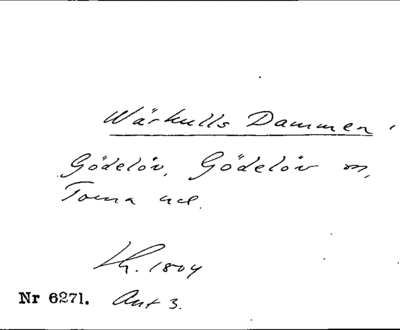 Wärkulls Dammen
Gödelöv, Gödelöv sn,
Torna hd.
Lh. 1804
Nr 6271. Akt 3.